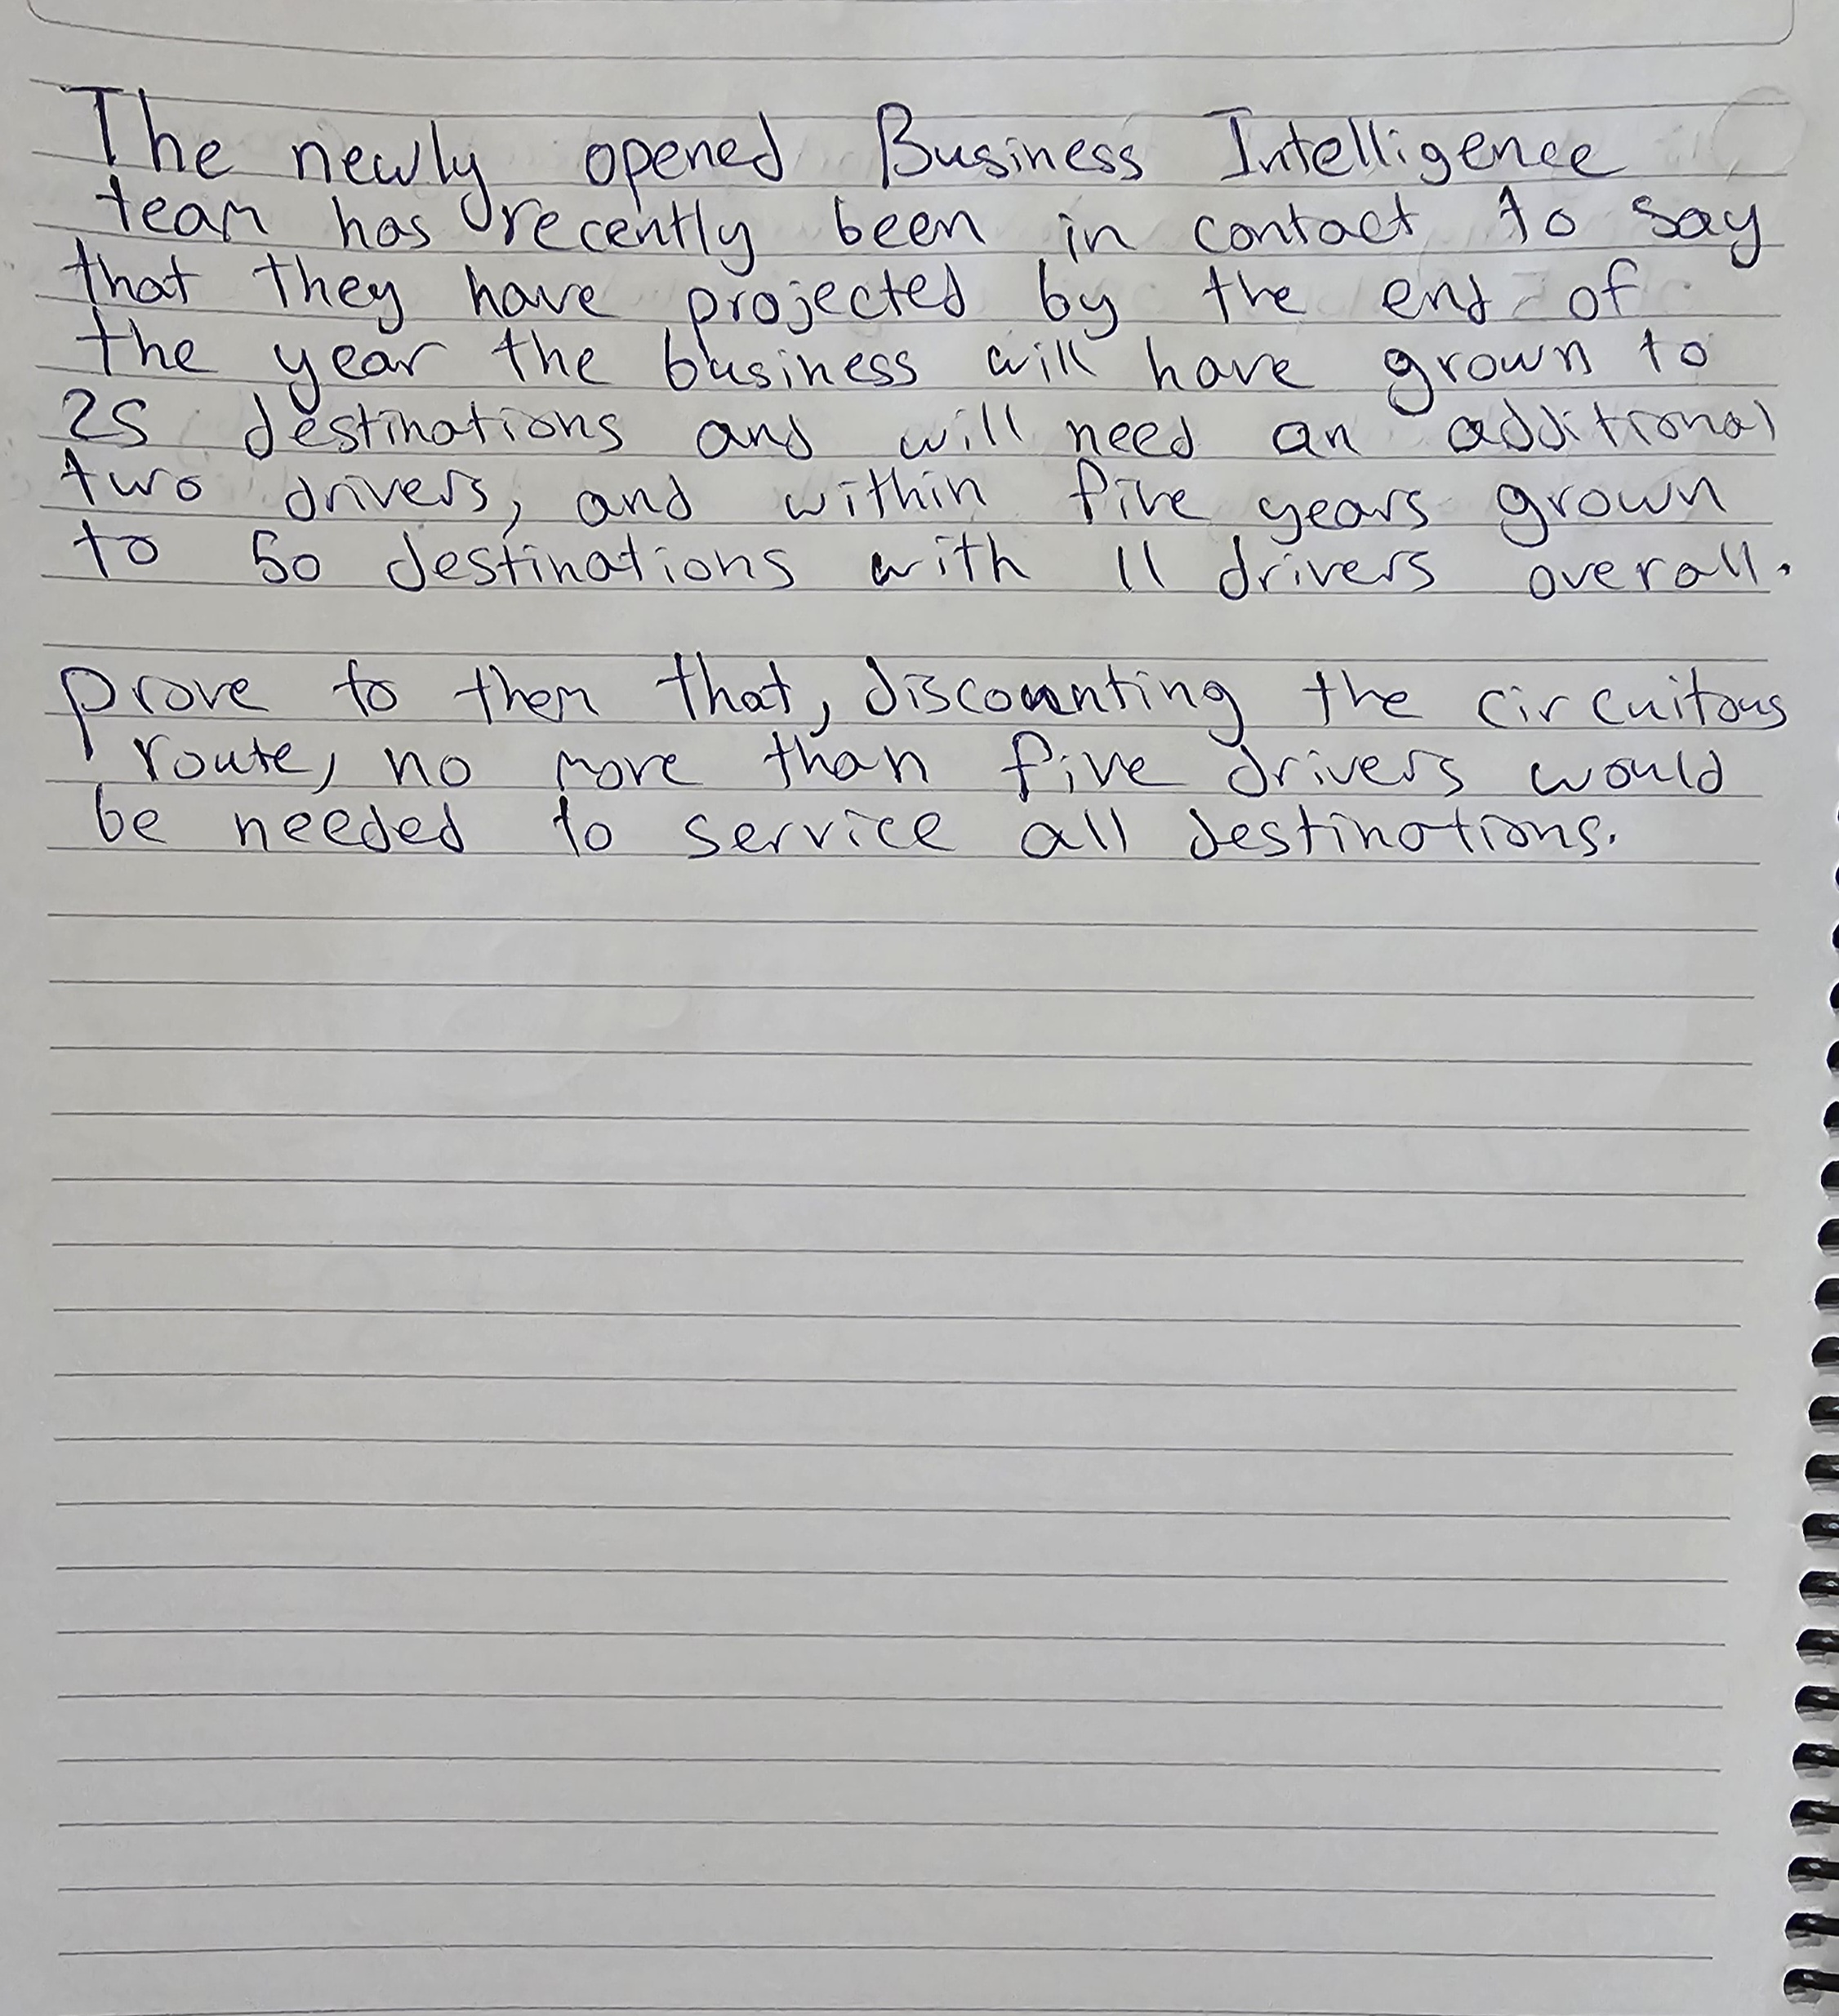 The newly opened Business Intelligence
team has recently been in contact to say
that they have projected by the end of
the year the business will have grown to
25 destinations and will need an additional
two drivers, and within five years grown
to 50 destinations with 11 drivers overall.
Prove to them that, discounting the circuitous
route, no more than five drivers would
be needed to service all destinations.